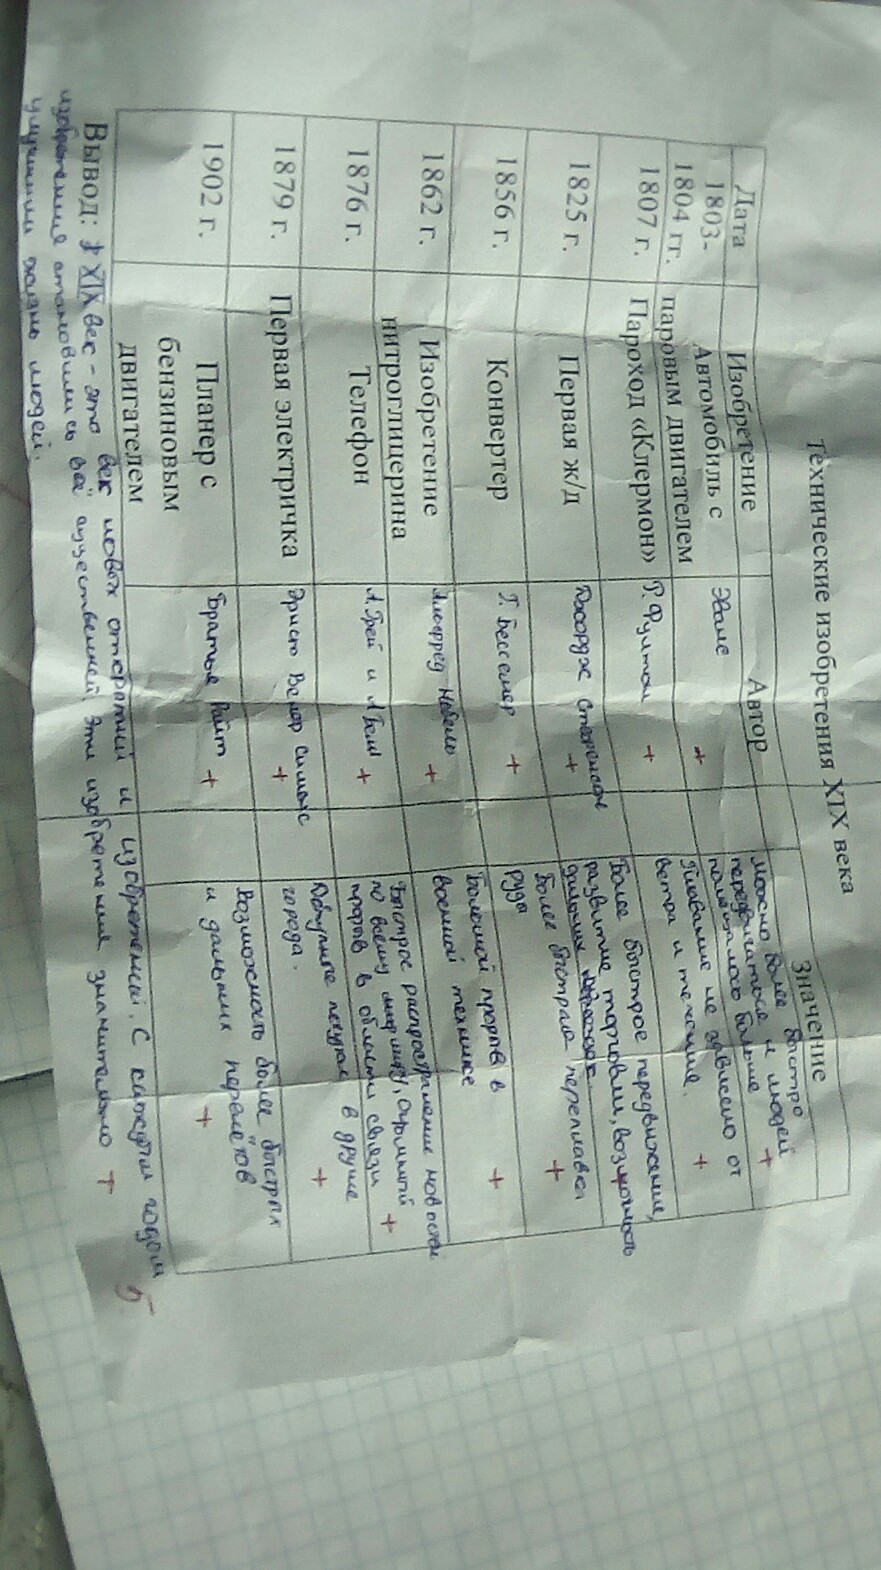 Технические изобретения XIX века
Дата Изобретение Автор Значение
1803-
1804 гг.
Автомобиль с
паровым двигателем
Эванс +
можно более быстро
передвигаться и людей
помещалось больше +
1807 г. Пароход «Клермон» Р. Фултон +
Плавание не зависело от
ветра и течения. +
1825 г. Первая ж/д Джордж Стефенсон +
Более быстрое передвижение,
развитие торговли, возможность
дальних
1856 г. Конвертер Г. Бессемер +
Более быстрая переплавка
руда +
1862 г. Изобретение
нитроглицерина
Альфред Нобель +
Большой прорыв в
военной технике +
1876 г. Телефон А. Грей и А Белл +
Быстрое распространение новостей
по всему миру, огромный
прорыв в области связи +
1879 г. Первая электричка Эрнст Вернер Сименс +
Доступные поездки в другие
города. +
1902 г. Планер с
бензиновым
двигателем
Братья Райт +
Возможность более быстрых
и дальних перелётов +
Вывод: XIX век - это век новых открытий и изобретений. С каждым годом
изобретения становились всё существенней. Эти изобретения значительно +
улучшили жизнь людей.
5